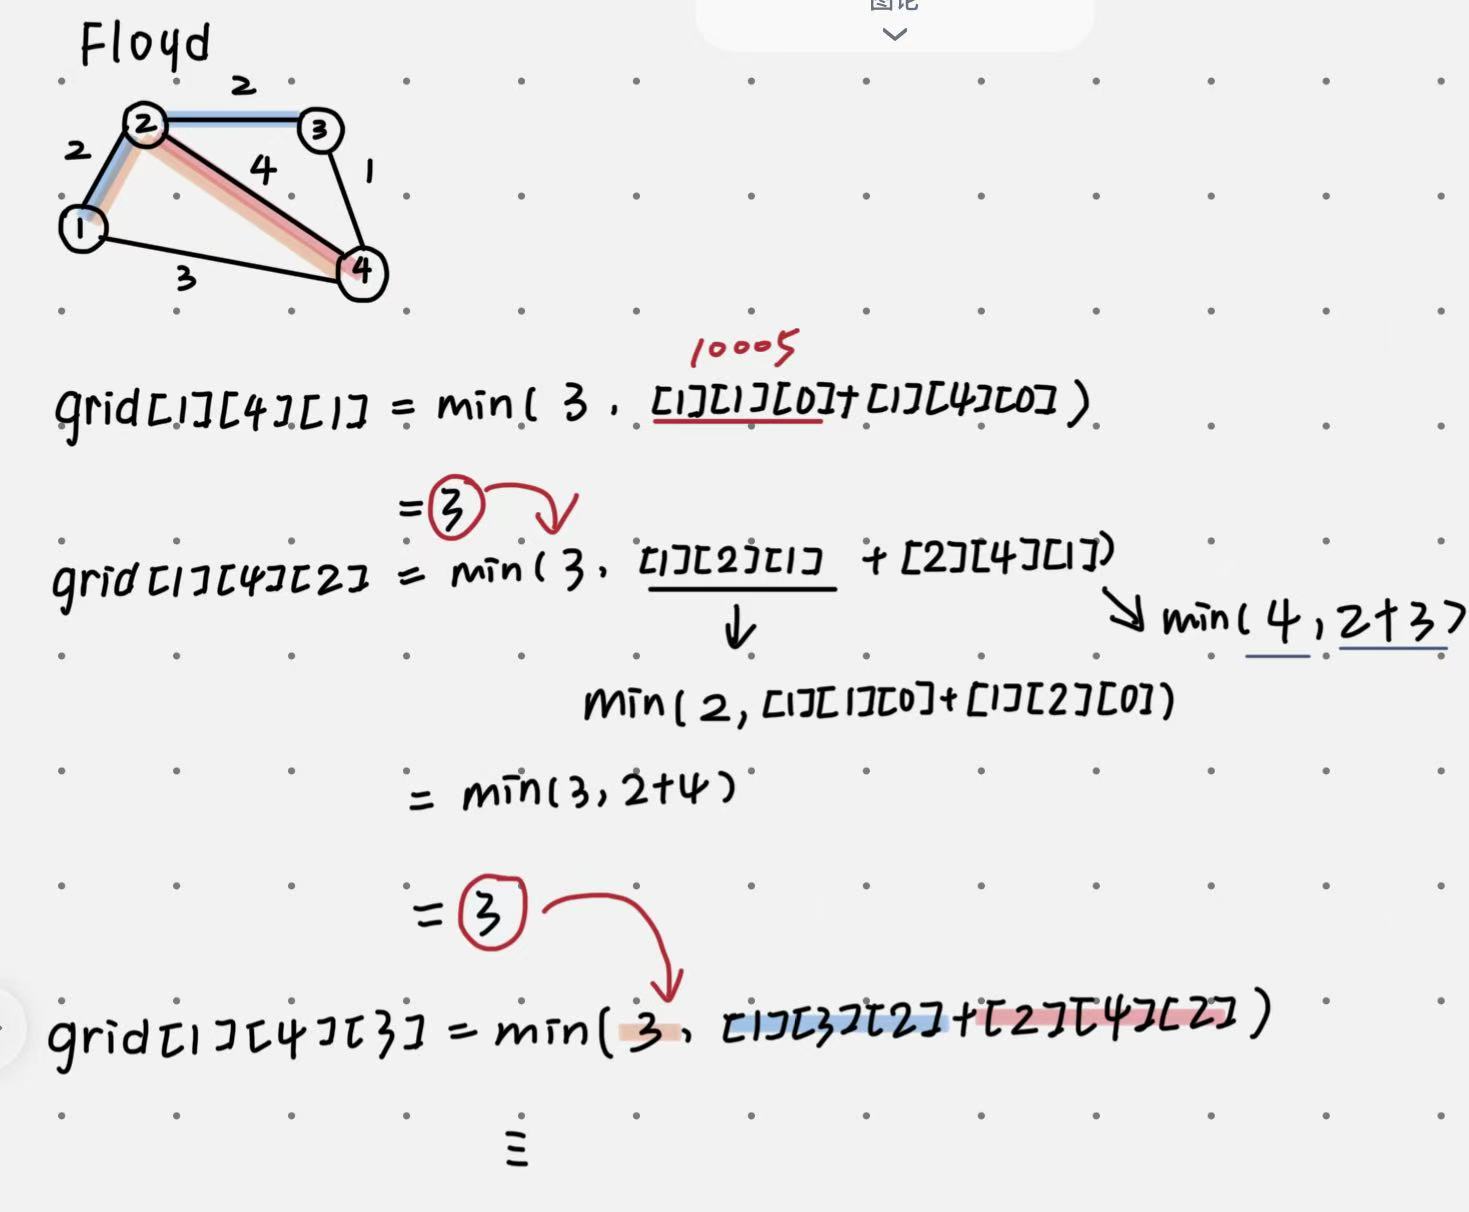 图论
Floyd
2
2
3
2
4
1
1
4
3
10005
grid[1][4][1] = min( 3 , [1][1][0]+[1][4][0] )
= 3
grid[1][4][2] = min( 3, [1][2][1] + [2][4][1])
min( 4, 2+3)
min( 2, [1][1][0]+[1][2][0])
= min(3, 2+4)
= 3
grid[1][4][3] = min( 3, [1][3][2]+[2][4][2] )